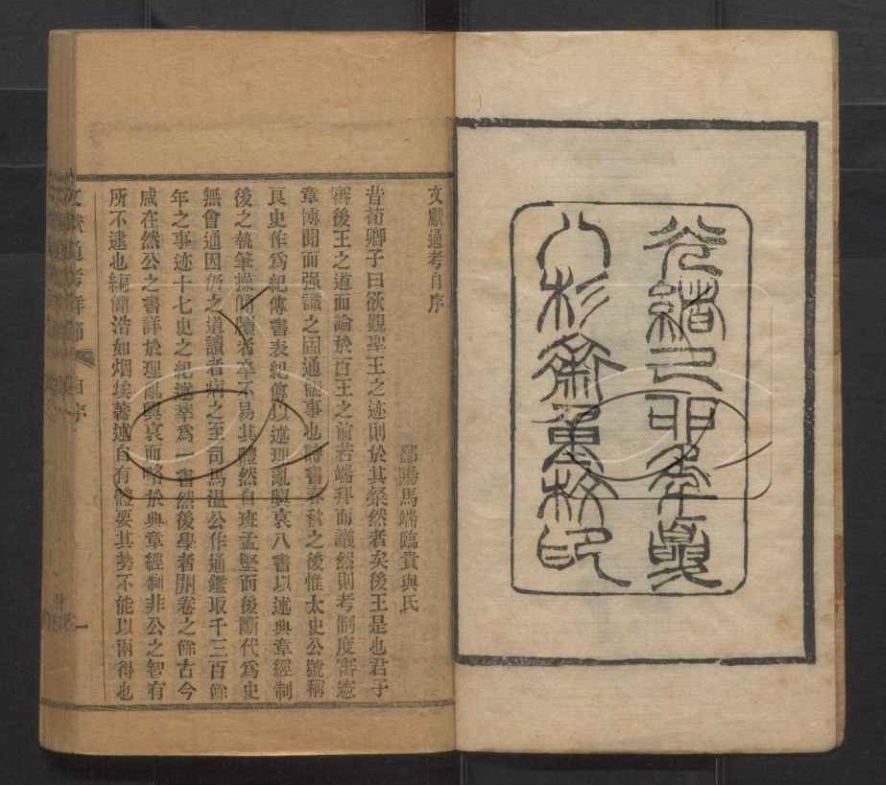 光緒己卯年夏
八杉齋重校印
文獻通考自序
鄱陽馬端臨貴與氏
昔荀卿子曰欲觀聖王之迹則於其粲然者矣後王是也君子
審後王之道而論於百王之前若端拜而議然則考制度審憲
章博聞而强識之固通儒事也詩書春秋之後惟太史公號稱
良史作爲紀傳書表紀傳以述理亂興衰八書以述典章經制
後之執筆操簡牘者卒不易其體然自班孟堅而後斷代爲史
無會通因仍之道讀者病之至司馬温公作通鑑取千三百餘
年之事迹十七史之紀述萃爲一書然後學者開卷之餘古今
咸在然公之書詳於理亂興衰而略於典章經制非公之智有
所不逮也編簡浩如烟埃著述自有體要其勢不能以兩得也
文獻通考詳節 自序 一